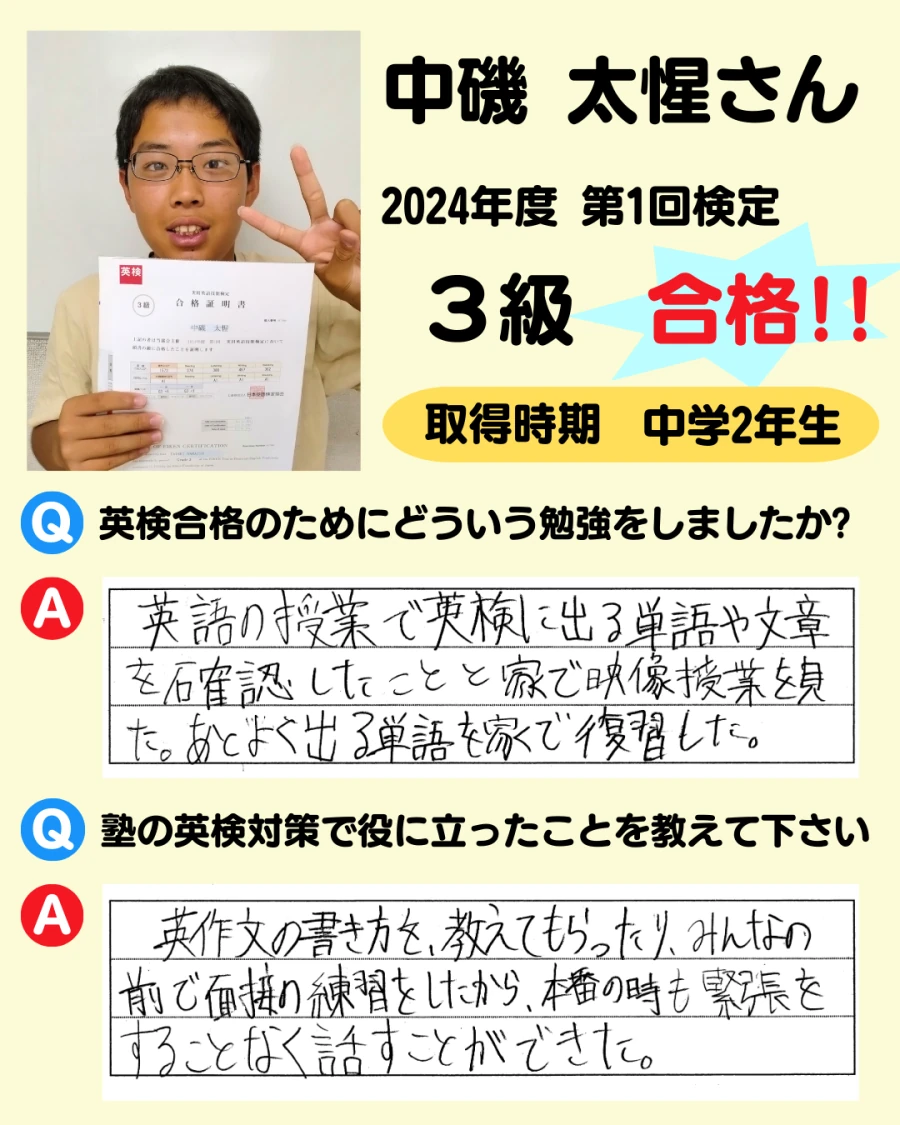 中磯 太惺さん
2024年度 第1回検定
3級 合格!!
取得時期 中学2年生
英検
3級
合格証明書
中磯 太惺
Q 英検合格のためにどういう勉強をしましたか?
A 英語の授業で英検に出る単語や文章
を確認したことと家で映像授業を見
た。あとよく出る単語を家で復習した。
Q 塾の英検対策で役に立ったことを教えて下さい
A 英作文の書き方を、教えてもらったり、みんなの
前で面接の練習をしたから、本番の時も緊張を
することなく話すことができた。